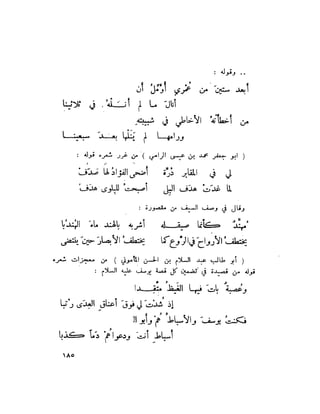 .. وقوله :
أبعد ستين من عُمْري أُؤَمِّلُ أن
أنال ما لم أنَلْهُ في ثلاثينا
من أخطأتهُ الأحاظي في شبيبته
ورامها لم يَنَلْها بعد سبعينا
( ابو جعفر محمد بن عيسى الرامي ) من غرر شعره قوله :
لي في المقابر دُرَّة أضحى الفؤادُ لهَا صَدَفْ
لما غدَتْ هدَف البِلى أصبحتُ للبلوى هدَفْ
وقال في وصف السيف من مقصورة :
مُهنَّدٌ كأنما صيقله أشربه بالهند ماءَ الهندُبا
يختطفُ الأرواحَ في الرَّوع كما يختطفُ الأبصارَ حينَ يُنتضى
( أبو طالب عبد السلام بن الحسن المأموني ) من معجزات شعره
قوله من قصيدة في تضمين كل قصة يوسف عليه السلام :
وعُصبةٌ باتَ فيها الغَيظُ متَّقِدا
إذ شُدْتَ لي فوق أعناقِ العِدى رتبا
فكنتُ يوسفَ والأسباطُ هُمْ وأبو الـ
أسباطِ أنتَ ودعواهُمْ دَماً كذبا
١٨٥